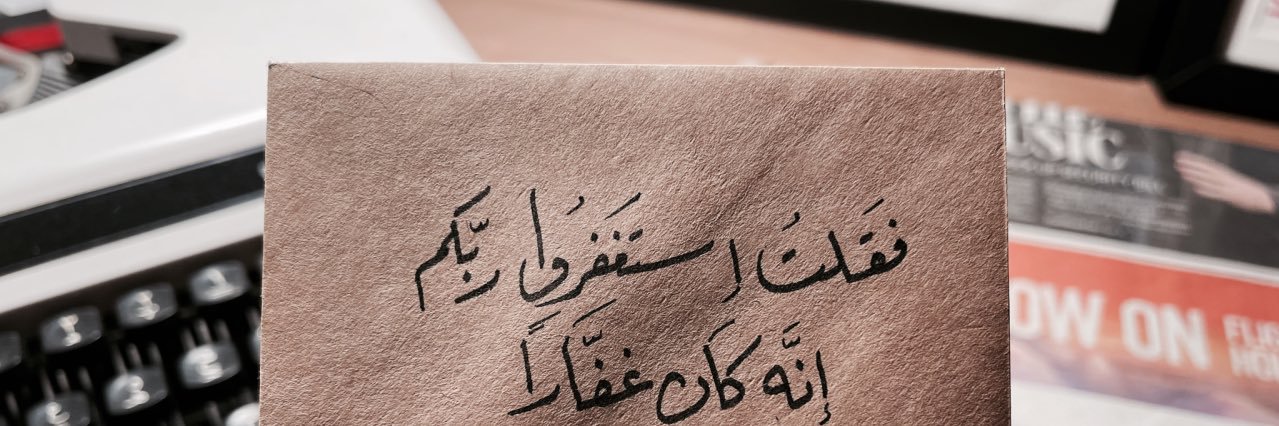 فقَلتُ اِستَغفِرُوا ربّكم
إنَّه كَان غفَّاراً
USIC
OW ON